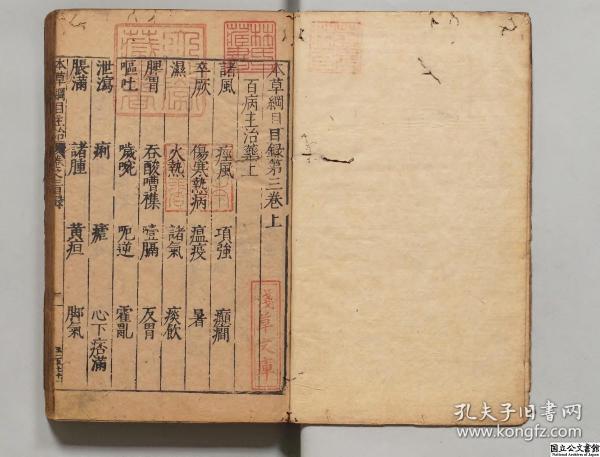 本草綱目目録第三卷上
百病主治藥上
諸風 痙風 項強 癲癇
卒厥 傷寒熱病 瘟疫 暑
濕 火熱 諸氣 痰飲
脾胃 吞酸嘈襍 噎膈 反胃
嘔吐 噦啘 呃逆 霍亂
泄瀉 痢 瘧 心下痞滿
脹滿 諸腫 黄疸 脚氣
本草綱目主治
淺草文庫
孔夫子旧书网
www.kongfz.com
国立公文書館
National Archives of Japan